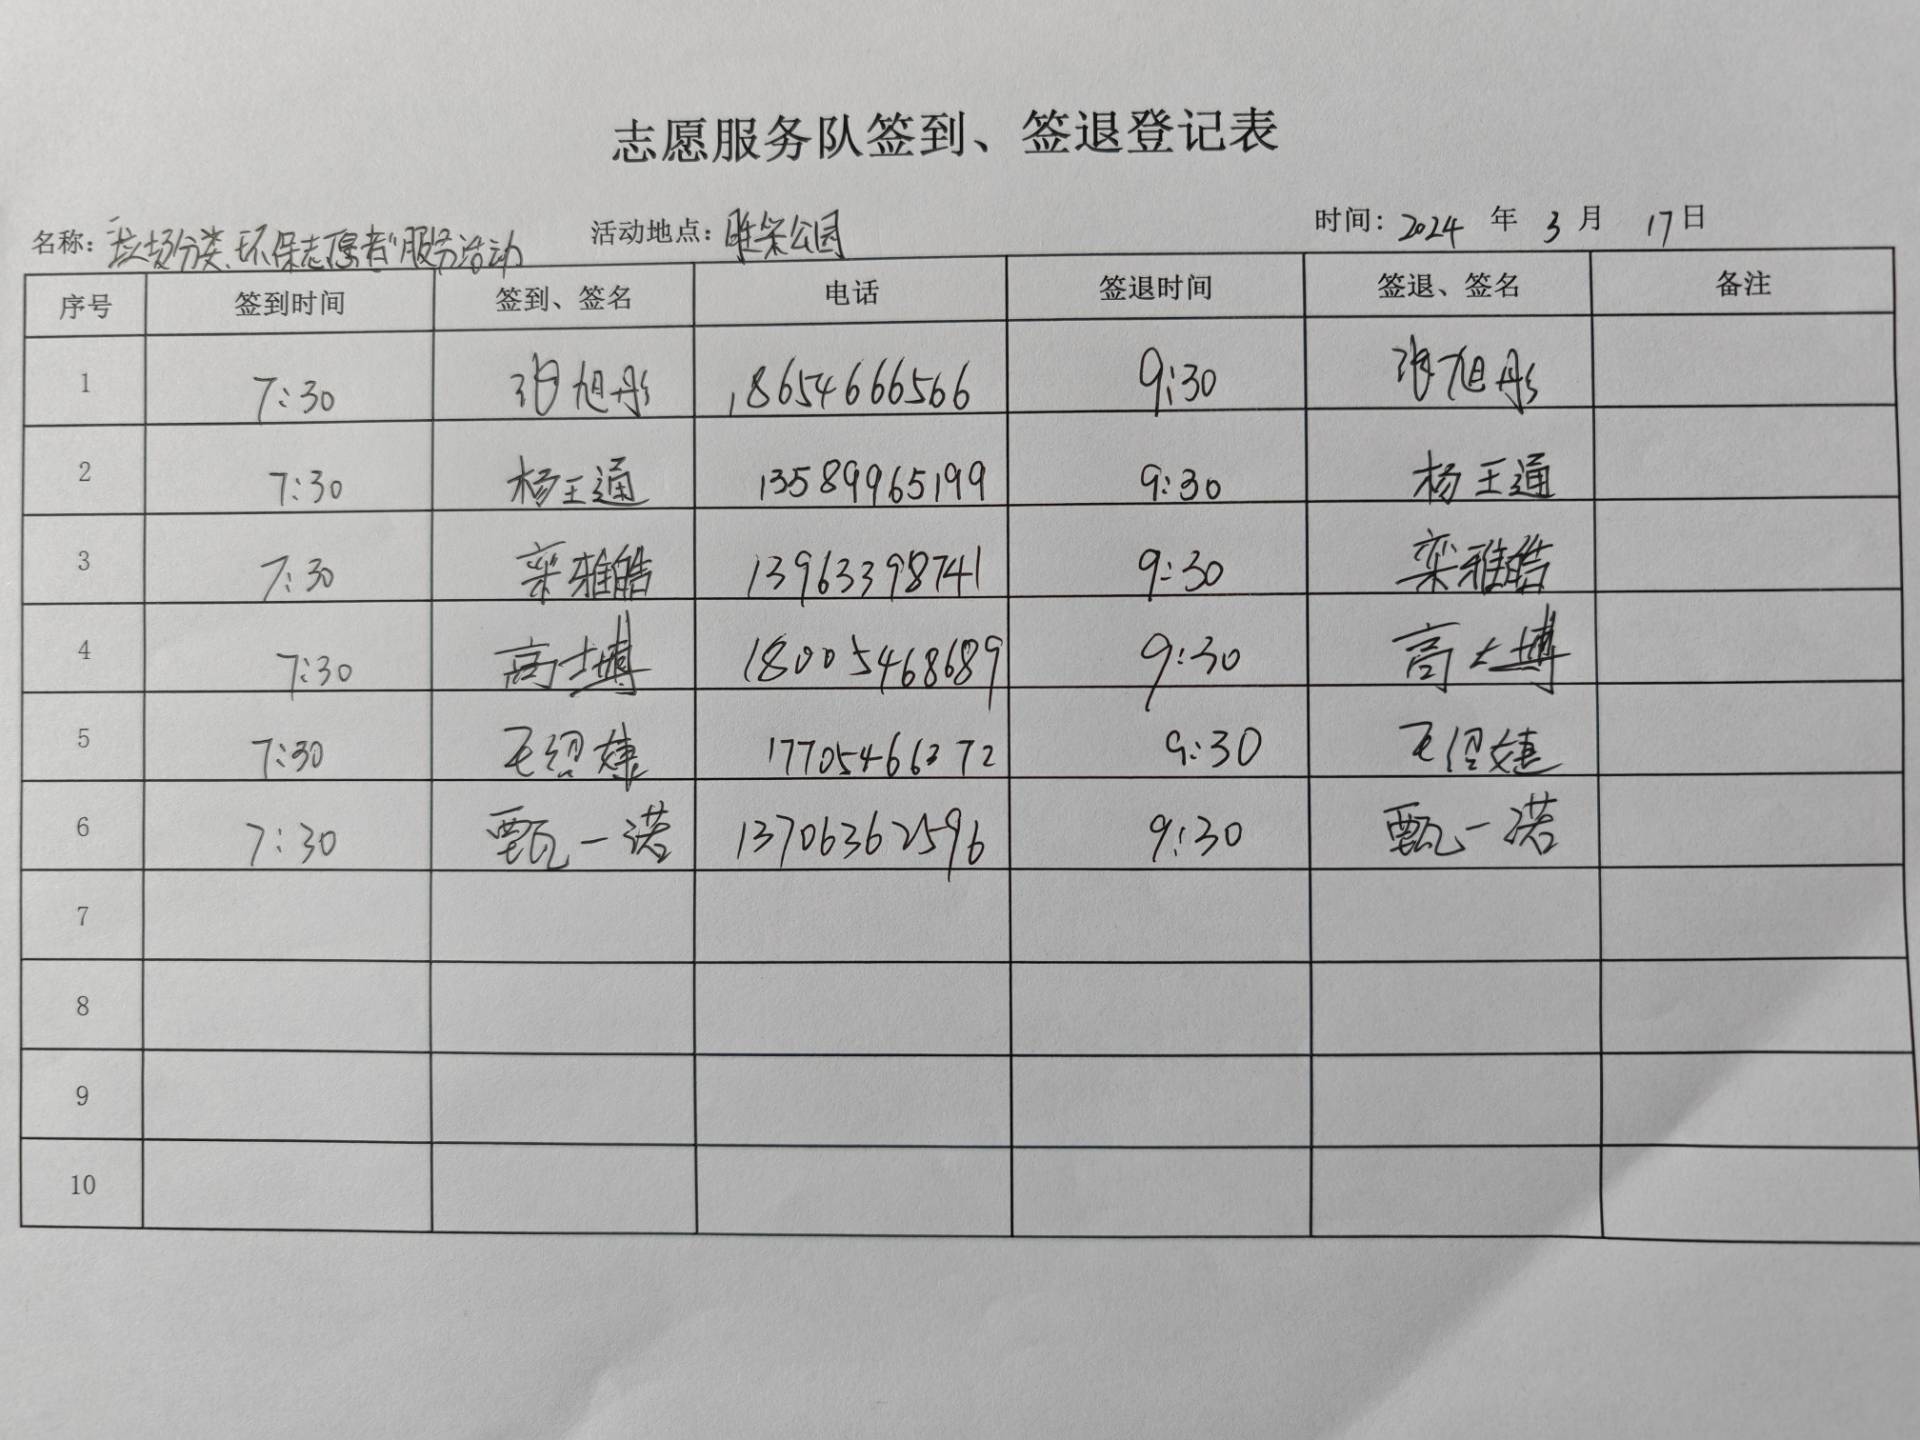 志愿服务队签到、签退登记表
名称：垃圾分类、环保志愿者"服务活动 活动地点：胜采公园 时间：2024 年 3 月 17 日
序号 签到时间 签到、签名 电话 签退时间 签退、签名 备注
1 7:30 旭彤 18654666566 9:30 旭彤
2 7:30 杨王通 13589965199 9:30 杨王通
3 7:30 栾雅皓 13963398741 9:30 栾雅皓
4 7:30 高士博 18005468689 9:30 高士博
5 7:30 毛绍婕 17705466372 9:30 毛绍婕
6 7:30 甄一诺 13706362596 9:30 甄一诺
7
8
9
10